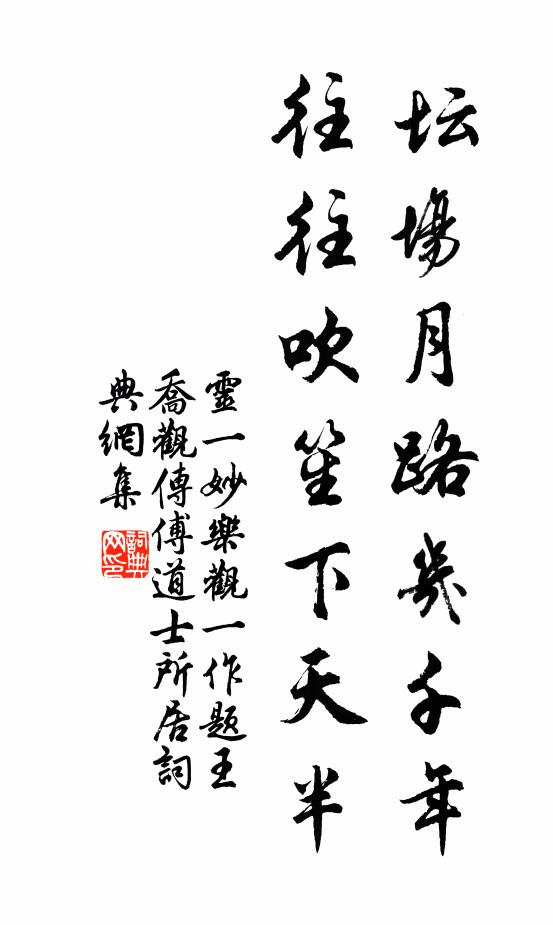 坛場月路幾千年
往往吹笙下天半
靈一妙樂觀一作題王
喬觀傳傅道士所居詞
典網集
詞典
网印